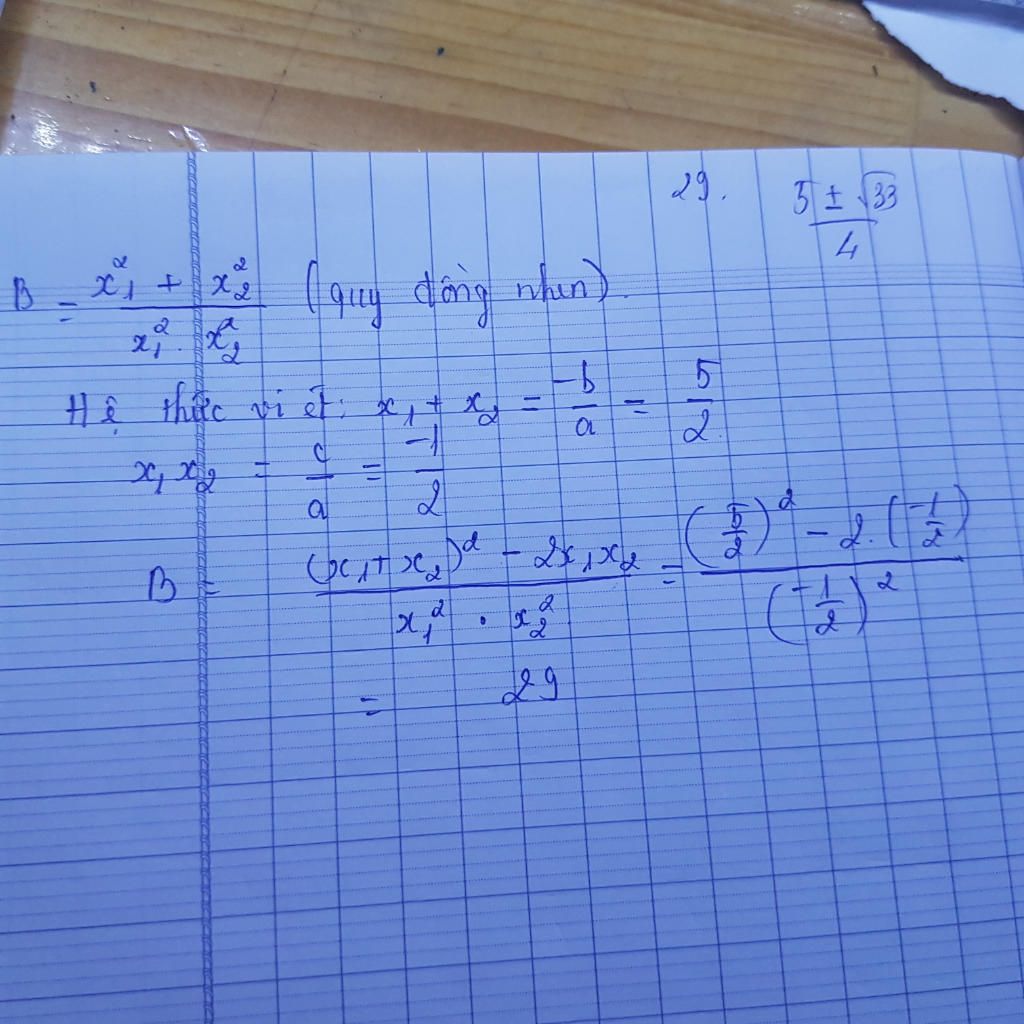 29. (5 ± √33)/4
B = (x₁² + x₂²)/(x₁² . x₂²) (quy đồng nhen).
Hệ thức viét: x₁ + x₂ = -b/a = 5/2
x₁x₂ = c/a = -1/2
B = ((x₁ + x₂)² - 2x₁x₂)/(x₁² . x₂²) = ((5/2)² - 2.(-1/2))/(-1/2)²
= 29